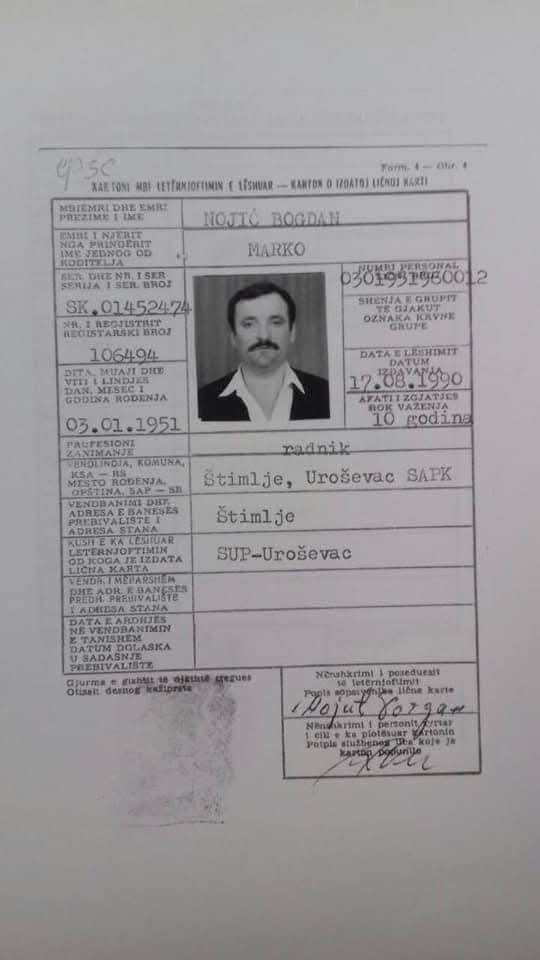 Form. 4 — Obr. 4
KARTONI MBI LETËRNJOFTIMIN E LËSHUAR — KARTON O IZDATOJ LIČNOJ KARTI
MBIEMRI DHE EMRI
PREZIME I IME
NOJIĆ BOGDAN
EMRI I NJERIT
NGA PRINDËRIT
IME JEDNOG OD
RODITELJA
MARKO
SER. DHE NR. I SER
SERIJA I SER. BROJ
SK.01452474
NR. I REGJISTRIT
REGISTARSKI BROJ
106494
DITA, MUAJI DHE
VITI I LINDJES
DAN, MESEC I
GODINA ROĐENJA
03.01.1951
NUMRI PERSONAL
SHENJA E GRUPIT
TË GJAKUT
OZNAKA KRVNE
GRUPE
DATA E LËSHIMIT
DATUM
IZDAVANJA
17.08.1990
AFATI I ZGJATJES
ROK VAŽENJA
10 godina
PROFESIONI
ZANIMANJE
radnik
VENDLINDJA, KOMUNA,
KSA — RS
MESTO ROĐENJA,
OPŠTINA, SAP — SR
Štimlje, Uroševac SAPK
VENDBANIMI DHE
ADRESA E BANESËS
PREBIVALIŠTE I
ADRESA STANA
Štimlje
KUSH E KA LËSHUAR
LETËRNJOFTIMIN
OD KOGA JE IZDATA
LIČNA KARTA
SUP-Uroševac
VENDB. I MËPARSHËM
DHE ADR. E BANESËS
PREDH. PREBIVALIŠTE
I ADRESA STANA
DATA E ARDHJES
NË VENDBANIMIN
E TANISHËM
DATUM DOLASKA
U SADAŠNJE
PREBIVALIŠTE
Gjurma e gishtit të djathtë tregues
Otisak desnog kažiprsta
Nënshkrimi i poseduesit
të letërnjoftimit
Potpis sopstvenika lične karte
Nënshkrimi i personit zyrtar
i cili e ka plotësuar kartonin
Potpis službenog lica koje je
karton popunilo